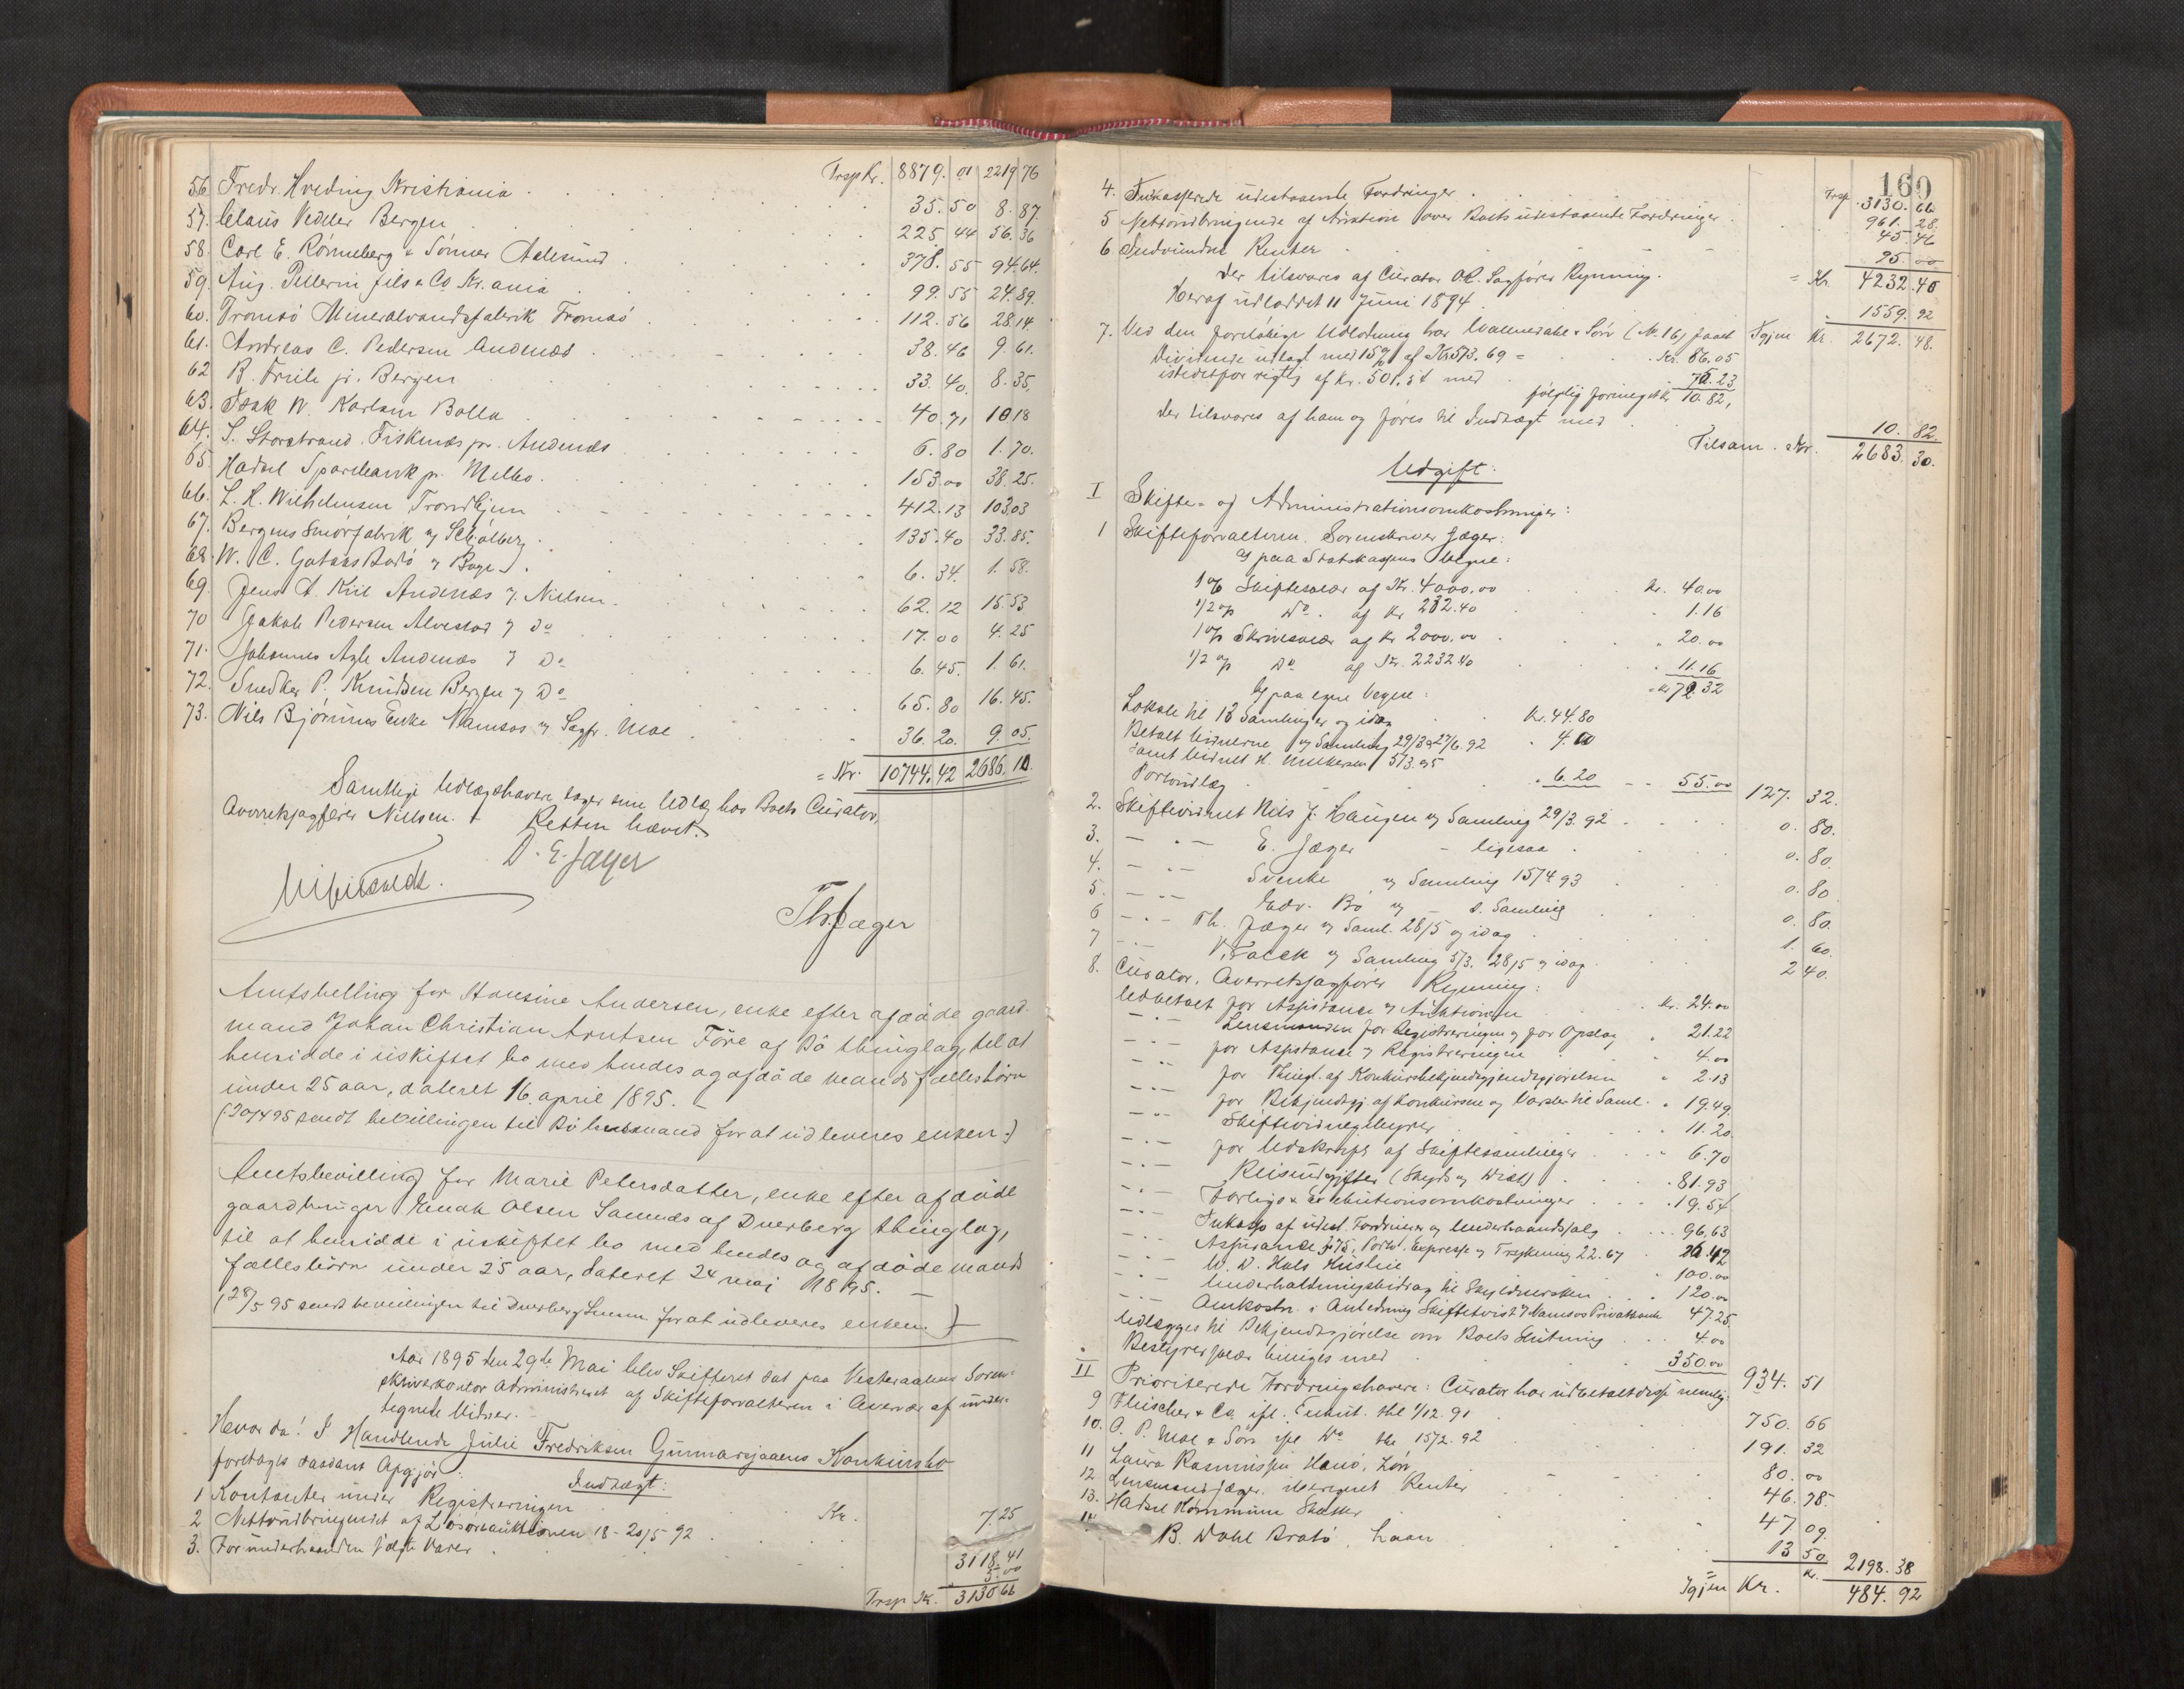 Trsp Kr. 8879. 01 2219 76
56. Fredr. Hveding Kristiania 35. 50 8. 87.
57. Claus Vedeler Bergen 225 44 56. 36
58. Carl E. Rönneberg & Sönner Aalesund 378. 55 94.64.
59. Aug. Pellerin fils & Co Kr.ania 99. 55 24.89.
60. Tromsö Mineralvandsfabrik Tromsö 112. 56 28.14
61. Andreas C. Pedersen Andenæs 38. 46 9. 61.
62 R. Friele jr. Bergen 33. 40. 8. 35.
63. Isak W. Karlsen Bolla 40. 71 10 18
64. S. Storstrand Fiskenæs pr. Andenæs 6. 80 1. 70.
65. Hadsel Sparebank pr. Melbo. 153. 00 38. 25.
66. L. H. Wilhelmsen Trondhjem 412. 13 103.03
67. Bergens Smörfabrik v Schölberg 135. 40 33. 85.
68. W. C. Bodö v 6. 34. 1. 58.
69. Jens A. Kiil Andenæs v. Nielsen 62. 12 15. 53
70 Jakob Pedersen Alvestad v do 17. 00 4. 25
71. Johannes Andenæs v Do 6. 45. 1. 61.
72. Snedker P. Knudsen Bergen v Do 65. 80 16. 45.
73. Nils Björums Enke Namsos v Sagf. Moe 36. 20. 9. 05.
= Kr. 10744. 42 2686. 10.
Samtlige Udlægshavere tager sin Udlæg hos Boets Curator,
Overretssagförer Nielsen. Retten hævet.
D. E. Jæger
Th. Jæger
Amtsbevilling for Hansine Andersen, enke efter afdöde gaard-
mand Johan Christian Arntsen Före af Bö thinglag, til at
hensidde i uskiftet bo med hendes og afdöde mands fællesbörn
under 25 aar, dateret 16. april 1895. –
(20/4 95 sendt bevillingen til Bö lensmand for at udleveres enken.)
Amtsbevilling for Marie Petersdatter, enke efter afdöde
gaardbruger Enok Olsen af Dverberg thinglag,
til at hensidde i uskiftet bo med hendes og afdöde mands
fællesbörn under 25 aar, dateret 24 mai 1895. –
(28/5 95 sendt bevillingen til Dverberg Lensm for at udleveres enken.)
Aar 1895 den 29de Mai blev Skifteret sat paa Vesteraalens Soren-
skriverkontor administreret af Skifteforvalteren i Overvær af under-
tegnede Vidner. –
Hvorda: I Handlende Julie Fredriksen Gunnarsjaaens Konkursbo
foretages saadant Opgjör: Indtægt:
1 Kontanter under Registreringen Kr. 7.25
2 Nettoudbringendet af Lösöreauktionen 18 – 20/5 92 3118. 41
3. For underhaanden solgte Varer 5. 00
Trsp Kr. 3130 66
160
Trsp 3130. 66
4. Inkasserede udestaaende Fordringer 961. 28.
5 Nettoudbringende af Auktion over Boets udestaaende Fordringer 45. 46
6 Indvundne Renter 95 00
Der tilsvares af Curator O.R. Sagförer Rynning. = Kr. 4232. 40
Heraf udloddet 11 Juni 1894 1559. 92
Igjen Kr. 2672. 48.
7. Ved den forelöbige Udlodning har & Sön (No. 16) faaet
Dividende udlagt med 15% af Kr 573. 69 = Kr. 86.05
istedetfor rigtig af Kr. 501. 54 med 75. 23
fölgelig formeget Kr 10. 82,
der tilsvares af ham og föres til Indtægt med 10. 82.
Tilsam. Kr. 2683. 30.
Udgift:
I Skifte- og Administrationsomkostninger:
1 Skifteforvalteren, Sorenskriver Jæger:
a) paa Statskassens Vegne:
1% Skiftesalær af Kr. 4000,00 Kr. 40.00
1/2 % Do. af Kr 232.40 1.16
1% Skrivesalær af Kr 2000,00 " 20.00
1/2 % Do af Kr. 2232 40 11.16
Kr 72. 32
b) paa egne Vegne:
Lokale til 13 Samlinger og idag Kr. 44.80
Betalt Vidnerne v Samling 29/3 & 27/6. 92 4. 00
samt Vidnet H. 5/3 95
Portoudlæg 6. 20 – 55.00 127. 32.
2. Skiftevidnet Nils J. Haugen v Samling 29/3. 92 0. 80.
3. – " – E. Jæger – ligesaa 0. 80.
4. – " – Svenke v Samling 15/4 93 0. 80
5. – " – Edv. Bö v – s. Samling 0. 80.
6 – " – Th. Jæger v Saml. 28/5 og idag 1. 60.
7 – " – V. Falck v Samling 5/3. 28/5 og idag 2 40.
8. Curator, Overretssagförer Rynning:
Udbetalt for Assistance v Auktionen Kr. 24.00
– " – Lensmanden for Registreringen og for Opslag " 21.22
– " – for Assistance v Registreringen " 4.00
– " – for Thingl. af Konkursbekjendtgjörelsen " 2.13
– " – for Bekjendtgj. af Konkursen og Varsler til Saml. " 19.49.
– " – Skiftevidnegebyrer 11. 20
– " – for Udskrift af Skiftesamlinger " 6. 70
– " – Reiseudgifter (Skyds og Diæt) . 81. 93
– " – Forligs & Exekutionsomkostninger . 19. 54
– " – Inkasso af udest. Fordringer og Underhaandssalg 96,63
– " – Assurance Porto. Expresse og Trykning 22.67 26.42
– " – W. D. Hals Husleie 100.00
– " – Underholdningsbidrag til Skyldnersken 120.00
– " – Omkostn. i Anledning Skiftetvist v Namsos Privatbank 47.25.
Udlægges til Bekjendtgjörelse om Boets Slutning 4. 00
Bestyrersalær billiges med 350.00 934. 51
II Prioriterede Fordringshavere: Curator har udbetalt disse nemlig:
9 Fleischer & Co ifl. Exekut. Skl 1/12. 91 750. 66
10. O. P. Moe & Sön ifl Do Skl 15/2. 92 191. 32
11 Laura Rasmussen Hano, Lön 80. 00
12 Lensmand Jæger, iberegnet Renter 46. 78.
13. Hadsel Kommune Skatter 47 09
14 B. Dahl Bratö, Laan 13 50 2198. 38
Igjen Kr. 484. 92